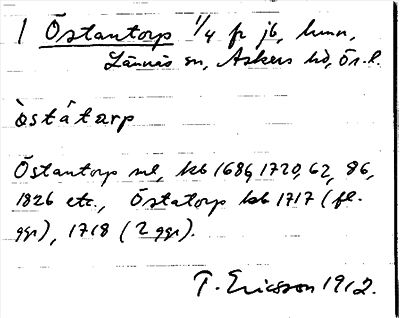 1 Östantorp 1/4 fr jb, hmn,
Lännäs sn, Askers hd, Ör. l.
òstátarp
Östantorp ml, kb 1686, 1720, 62, 86,
1826 etc., Östatorp kb 1717 (fl.
ggr), 1718 (2 ggr).
T. Ericsson 1912.